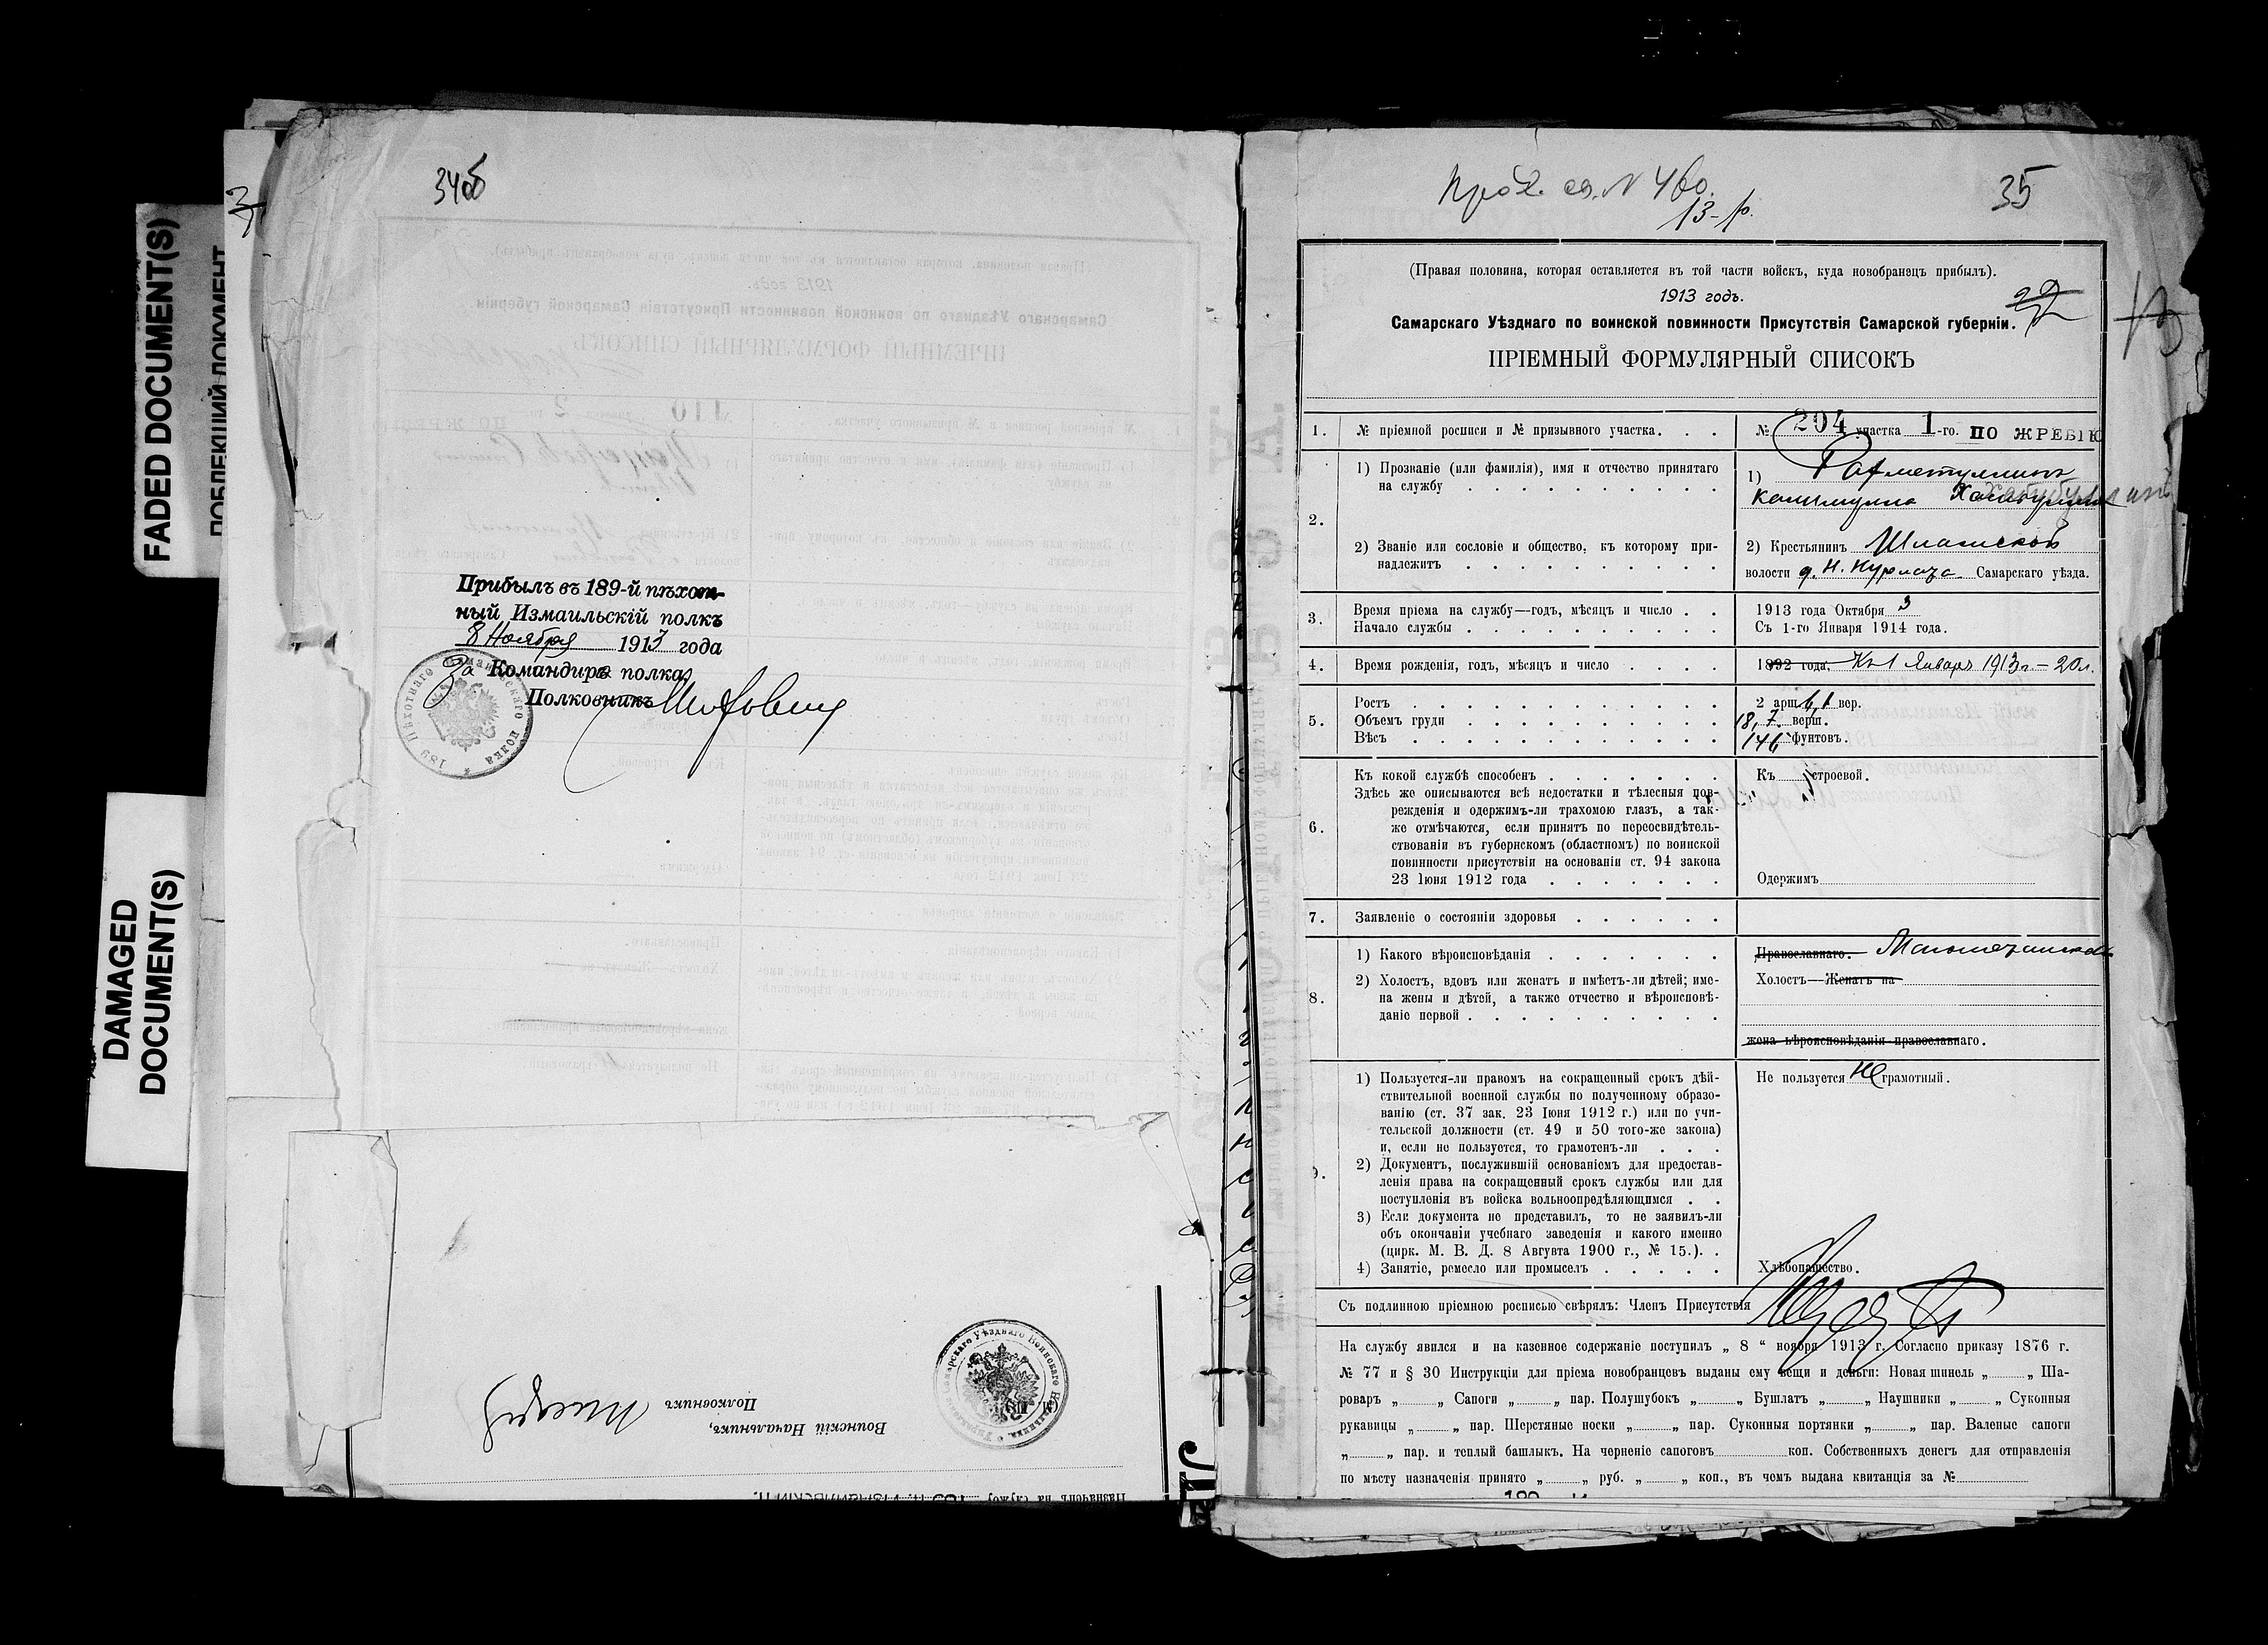 FADED DOCUMENT(S)
DAMAGED
DOCUMENT(S)
34об
Прибылъ въ 189-й пѣхот-
ный Измаильскій полкъ
8 Ноября 1913 года
За Командира полка,
Полковникъ
Воинскій Начальникъ,
Полковникъ
35
13-р.
(Правая половина, которая оставляется въ той части войскъ, куда новобранецъ прибылъ).
1913 годъ.
Самарскаго Уѣзднаго по воинской повинности Присутствія Самарской губерніи.
ПРІЕМНЫЙ ФОРМУЛЯРНЫЙ СПИСОКЪ
1. № пріемной росписи и № призывного участка. . . № 204 участка 1-го. ПО ЖРЕБІЮ
2. 1) Прозваніе (или фамилія), имя и отчество принятаго
на службу 1) Рахметуллинъ
Калимулла
2) Званіе или сословіе и общество, къ которому при-
надлежитъ 2) Крестьянинъ
волости д. Н. Курлача Самарскаго уѣзда.
3. Время пріема на службу—годъ, мѣсяцъ и число . . 1913 года Октября 3
Начало службы Съ 1-го Января 1914 года.
4. Время рожденія, годъ, мѣсяцъ и число 1892 года, Къ 1 Января 1913 г. — 20 л.
5. Ростъ 2 арш. вер.
Объемъ груди 18,7 верш.
Вѣсъ 146 фунтовъ.
6. Къ кокой службѣ способенъ Къ строевой.
Здѣсь же описываются всѣ недостатки и тѣлесныя пов-
режденія и одержимъ-ли трахомою глазъ, а так-
же отмѣчаются, если принятъ по переосвидѣтель-
ствованіи въ губернскомъ (областномъ) по воинской
повинности присутствіи на основаніи ст. 94 закона
23 Іюня 1912 года Одержимъ
7. Заявленіе о состояніи здоровья
8. 1) Какого вѣроисповѣданія Православнаго. Магометанскаго
2) Холостъ, вдовъ или женатъ и имѣетъ-ли дѣтей; име- Холостъ—Женатъ на
на жены и дѣтей, а также отчество и вѣроисповѣ-
даніе первой
жена вѣроисповѣданія православнаго.
9. 1) Пользуется-ли правомъ на сокращенный срокъ дѣй- Не пользуется не грамотный.
ствительной военной службы по полученному образо-
ванію (ст. 37 зак. 23 Іюня 1912 г.) или по учи-
тельской должности (ст. 49 и 50 того-же закона)
и, если не пользуется, то грамотенъ-ли . . .
2) Документъ, послужившій основаніемъ для предостав-
ленія права на сокращенный срокъ службы или для
поступленія въ войска вольноопредѣляющимся . .
3) Если документа не представилъ, то не заявилъ-ли
объ окончаніи учебнаго заведенія и какого именно
(цирк. М. В. Д. 8 Августа 1900 г., № 15.). .
4) Занятіе, ремесло или промыселъ Хлѣбопашество.
Съ подлинною пріемною росписью свѣрялъ: Членъ Присутствія
На службу явился и на казенное содержаніе поступилъ „ 8 “ ноября 1913 г. Согласно приказу 1876 г.
№ 77 и § 30 Инструкціи для пріема новобранцевъ выданы ему вещи и деньги: Новая шинель „ „ Ша-
роваръ „ „ Сапоги „ „ пар. Полушубокъ „ „ Бушлатъ „ „ Наушники „ „ Суконныя
рукавицы „ „ пар. Шерстяные носки „ „ пар. Суконныя портянки „ „ пар. Валеные сапоги
„ „ пар. и теплый башлыкъ. На черненіе сапоговъ коп. Собственныхъ денегъ для отправленія
по мѣсту назначенія принято „ „ руб. „ „ коп., въ чемъ выдана квитанція за №